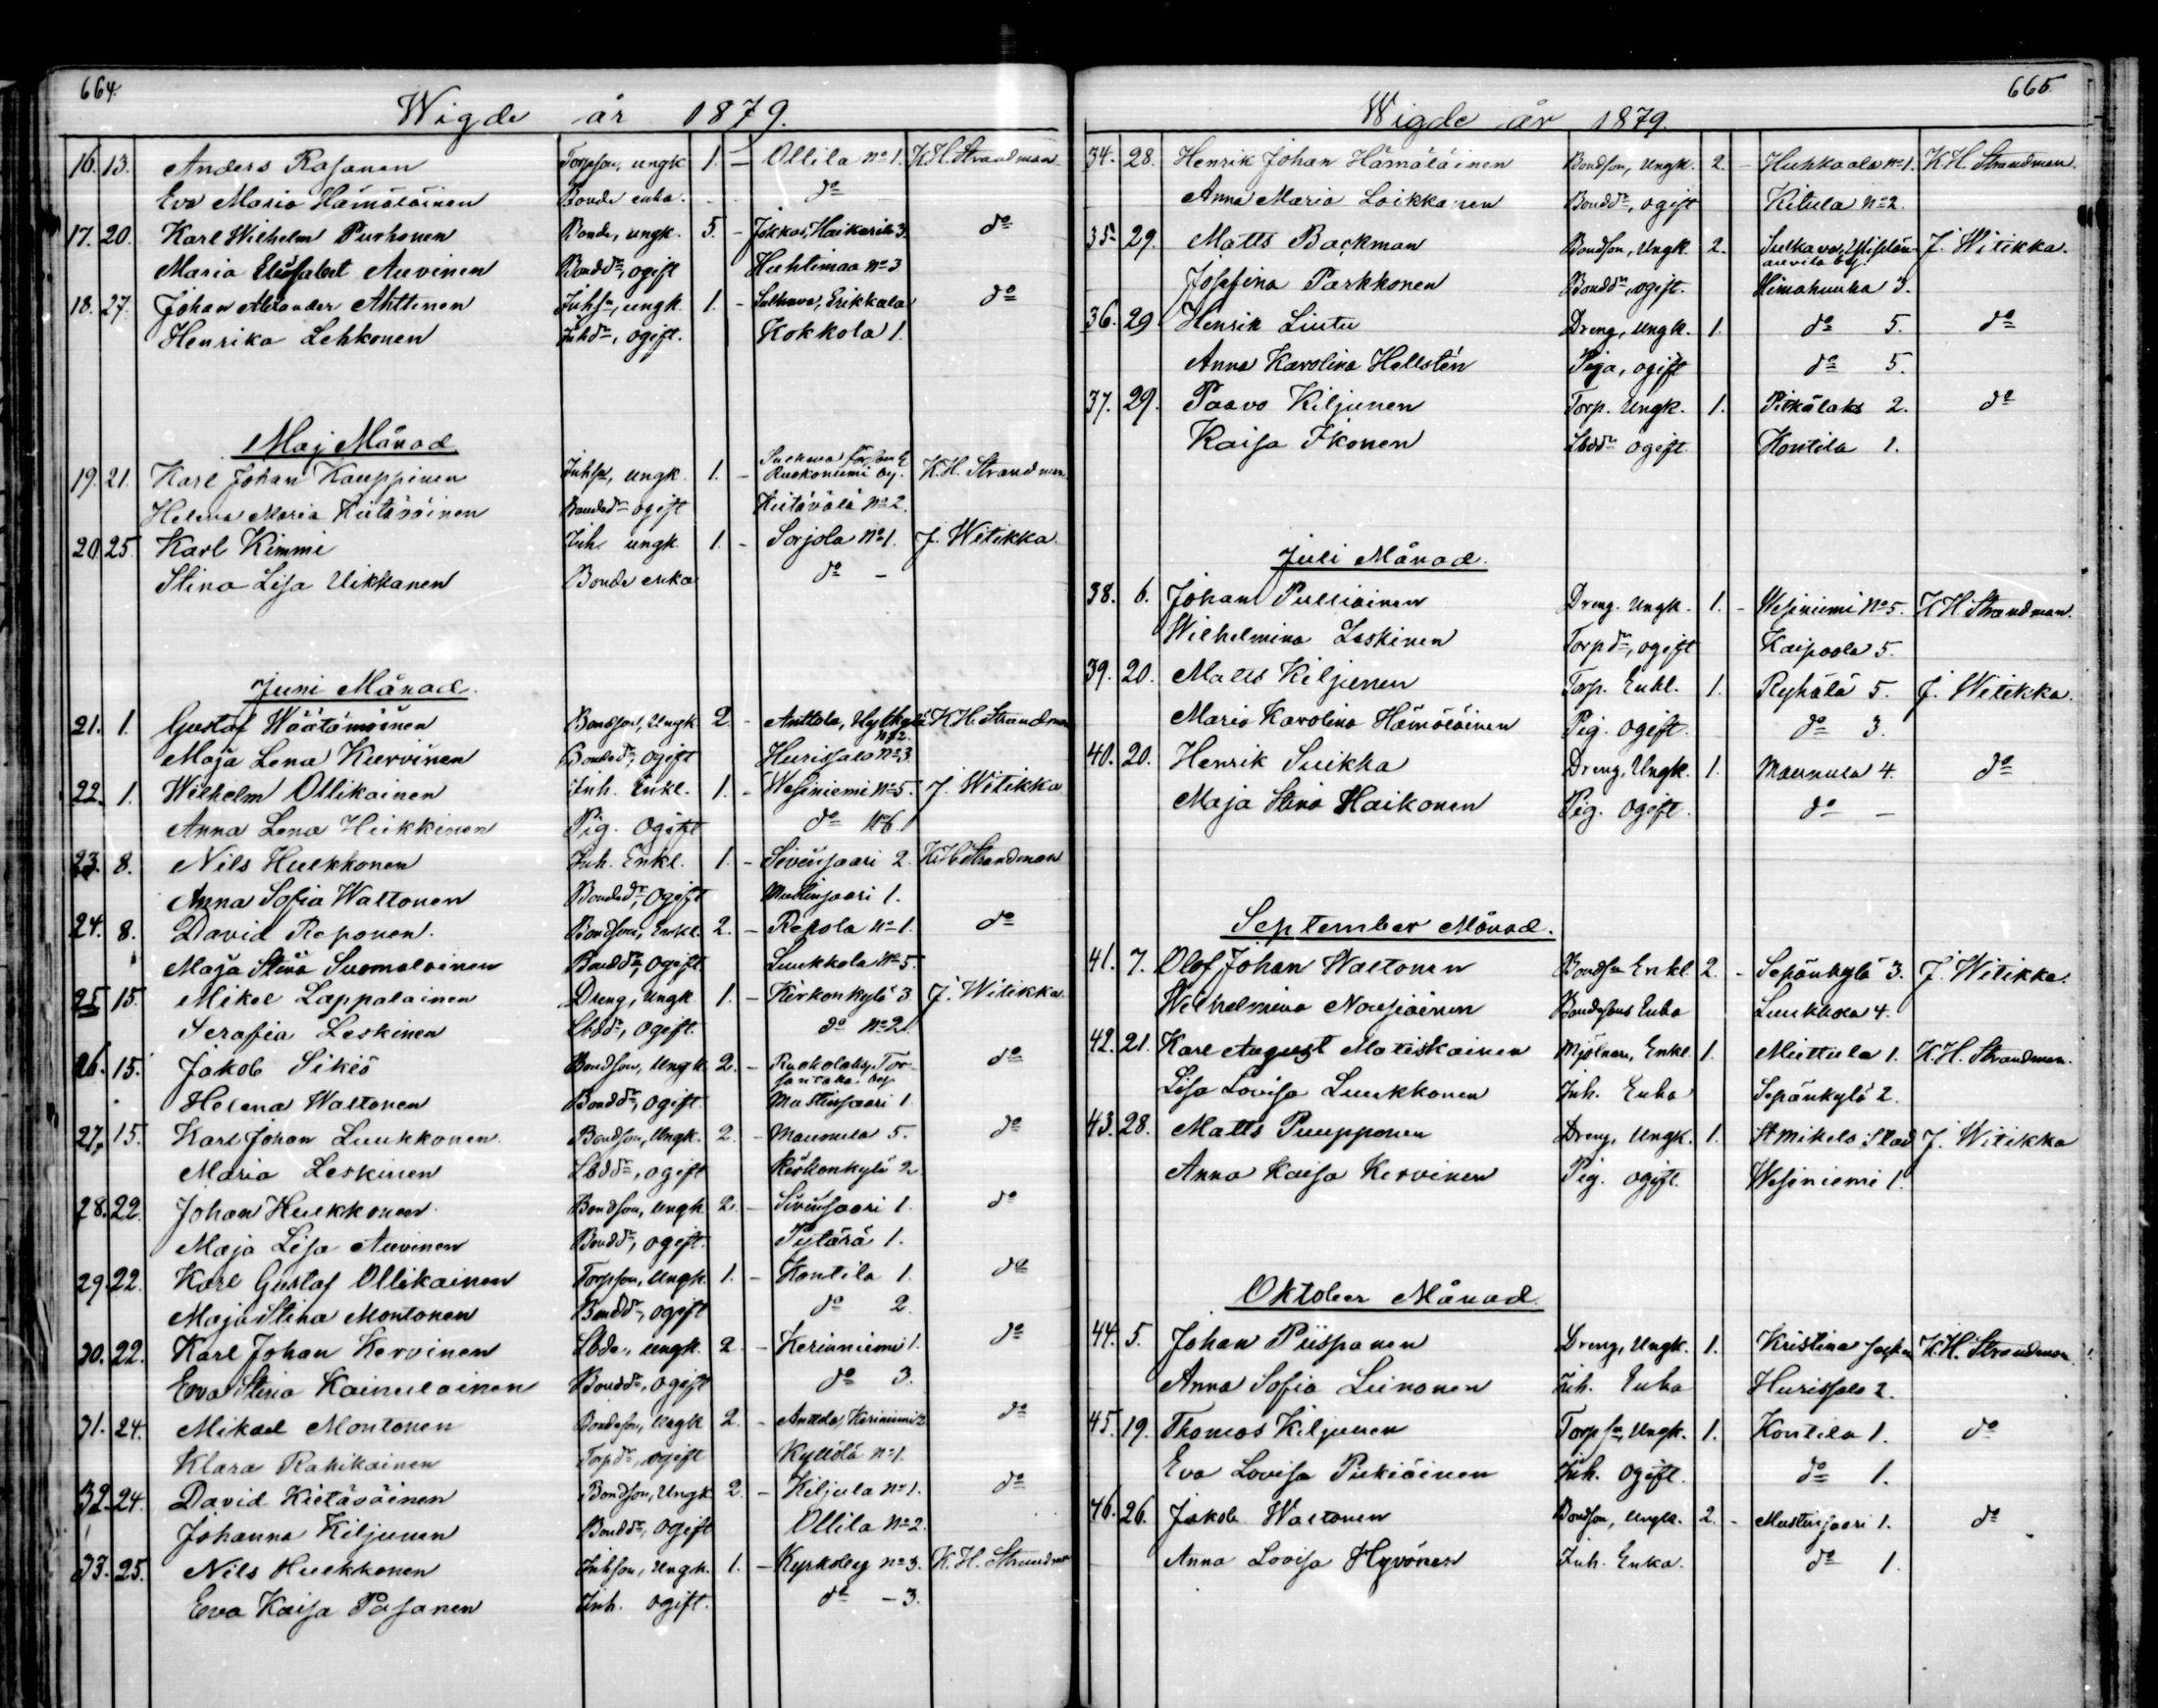 664.
Wigde år 1879.
16. 13. Anders Rasanen Torpson, ungk 1. – Ollila No 1. K.H. Strandman
Eva Maria Hämäläinen Bonde enka. do
17. 20. Karl Wilhelm Purhonen Bonde, ungk. 5. – Jokkas, Haikarila 3. do
Maria Elisabet Auvinen Bonddr, ogift Huhtimaa No 3
18. 27. Johan Alexander Ahttinen Inhsn, ungk. 1. – Sulkava, Erikkala do
Henrika Lehkonen Inhdr, ogift. Kokkola 1.
Maj Månad
19. 21. Karl Johan Kauppinen Inhsn, ungk. 1. – Sulkava Ruokoniemi by. K.H. Strandman
Helena Maria Kietäväinen Bondedr ogift Kietävälä No 2.
20. 25. Karl Kimmi Inh. ungk. 1. – Sorjola No 1. J. Witikka.
Stina Lisa Uikkanen Bonde enka do –
Juni Månad.
21. 1. Gustaf Wäätämöinen Bondson, Ungk 2. – Anttola, Hylkylä No 2. K.H. Strandman
Maja Lena Kurvinen Bondedr, ogift Hurissalo No 3.
22. 1. Wilhelm Ollikainen Inh. Enkl. 1. – Wesiniemi No 5. J. Witikka
Anna Lena Hiikkinen Pig. Ogift do No 6.
23. 8. Nils Hulkkonen Inh. Enkl. 1. – Siviinsaari 2. K.H. Strandman
Anna Sofia Waltonen Bondedr, Ogift Mustinsaari 1.
24. 8. David Reponen. Bondson, Enkl. 2. – Repola No 1. do
Maja Stina Suomalainen Bonddr, Ogift. Luukkola No 5.
25 15. Mikel Lappalainen Dreng, Ungk 1. – Kirkonkylä 3 J. Witikka.
Serafia Leskinen Lbddr, Ogift. do No 2.
26. 15. Jakob Sikiö Bondson, Ungk 2. – Ruokolaks, by do
Helena Waltonen Bonddr, Ogift. Mustinsaari 1
27. 15. Karl Johan Luukkonen. Bondson, Ungk. 2. – Maunula 5. do
Maria Leskinen Lbddr, ogift Kirkonkylä 2
28. 22. Johan Hulkkonen. Bondson, Ungk 2. – Siviinsaari 1. do
Maja Lisa Auvinen Bonddr, ogift. Pistärä 1.
29. 22. Karl Gustaf Ollikainen Torpson, Ungk. 1. – Hontila 1. do
Maja Stina Montonen Bonddr, ogift do 2.
30. 22. Karl Johan Kervinen Lbde., ungk. 2. – Kerinniemi 1. do
Eva Stina Kainulainen Bonddr, ogift do 3.
31. 24. Mikael Montonen Bondeson, Ungk 2. – Anttola, Kiriniemi 2 do
Klara Rahikainen Torpdr, ogift Kyllölä No 1.
32. 24. David Kietäväinen Bondson, Ungk 2. – Kiljula No 1. do
Johanna Kiljunen Bonddr, Ogift Ollila No 2.
33. 25. Nils Hulkkonen Inhson, Ungk. 1. – Kyrkoby No 3. K.H. Strandman
Eva Kaisa Pasanen Inh. ogift. do – 3.
665.
Wigde år 1879.
34. 28. Henrik Johan Hämäläinen Bondson, Ungk. 2. – Huhkaala No 1. K.H. Strandman.
Anna Maria Loikkanen Bonddr, ogift Kitula No 2.
35. 29. Matts Backman Bondson, Ungk. 2. Sulkava, by. J. Witikka.
Josefina Parkkonen Bonddr, ogift. Himahuuha 3.
36. 29 Henrik Lintu Dreng, Ungk. 1. do 5. do
Anna Karolina Hellstén Piga, ogift do 5.
37. 29. Paavo Kiljunen Torp. Ungk. 1. Pitkälaks 2. do
Kaisa Ikonen Lbddr ogift. Hontila 1.
Juli Månad.
38. 6. Johan Pulliainen Dreng. Ungk. 1. – Wesiniemi No 5. K.H. Strandman.
Wilhelmina Leskinen Torpdr, ogift Kaipaala 5.
39. 20. Matts Kiljunen Torp. Enkl. 1. Ryhälä 5. J. Witikka.
Maria Karolina Hämäläinen Pig. ogift. do 3.
40. 20. Henrik Suikka Dreng, Ungk. 1. Maunula 4. do
Maja Stina Haikonen Pig. Ogift. do –
September Månad.
41. 7. Olof Johan Waltonen Bondsn Enkl 2. – Sepänkylä 3. J. Witikka.
Wilhelmina Nousiainen Bondesons Enka Luukkola 4.
42. 21. Karl August Matiskainen Mjölnare, Enkl. 1. Miettula 1. K.H. Strandman.
Lisa Lovisa Luukkonen Inh. Enka Sepänkylä 2.
43. 28. Matts Puupponen Dreng, Ungk. 1. St Mikels Stad J. Witikka
Anna Kaisa Kervinen Pig. ogift. Wesiniemi 1.
Oktober Månad.
44. 5. Johan Piispanen Dreng, Ungk. 1. Kristina K.H. Strandman.
Anna Sofia Leinonen Inh. Enka Hurissalo 2.
45. 19. Thomas Kiljunen Torpsn, Ungk. 1. Hontila 1. do
Eva Lovisa Pirkiäinen Inh. Ogift. do 1.
46. 26. Jakob Waltonen Bondson, Ungk. 2. – Mustinsaari 1. do
Anna Lovisa Hyvönen Inh. Enka. do 1.